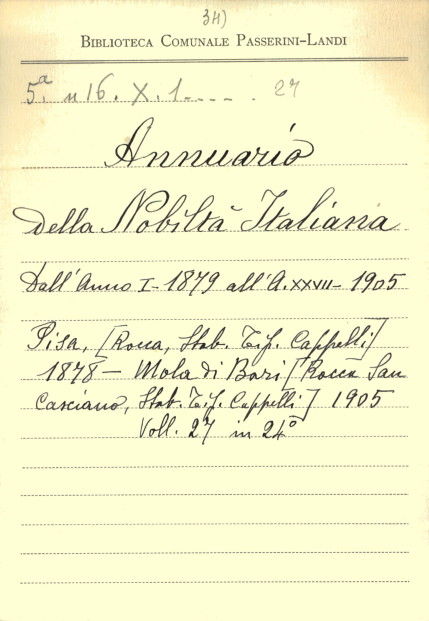 34)
BIBLIOTECA COMUNALE PASSERINI-LANDI
5.a n 16. X. 1---- . 27
Annuario
della Nobiltà Italiana
Dall'Anno I- 1879 all'A. XXVII- 1905
Pisa, [Rocca, Stab. Tip. Cappelli]
1878 - Mola di Bari [Rocca San
Casciano, Stab. Tip. Cappelli] 1905
Voll. 27 in 24°